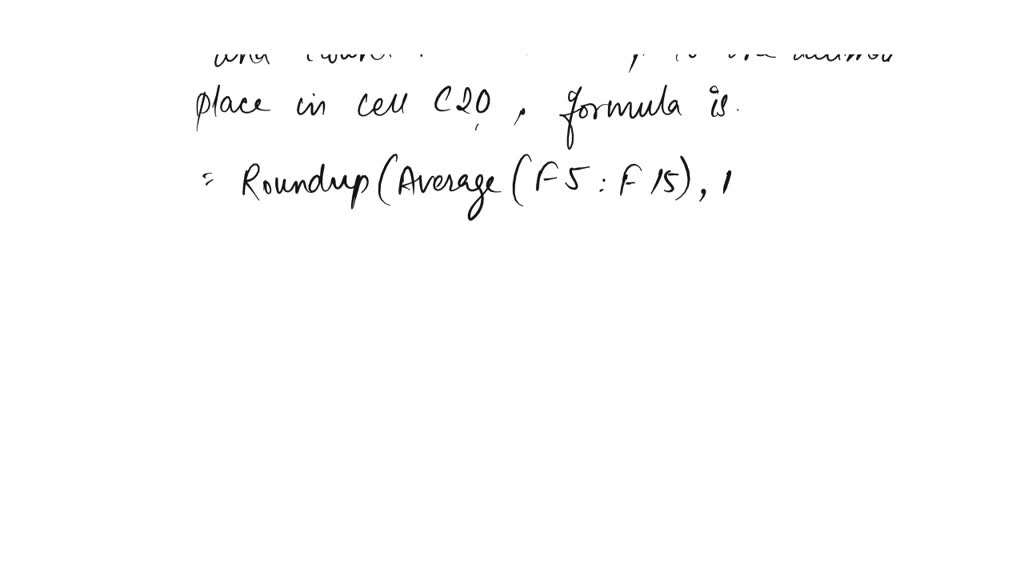 place in cell C20, formula is.
= Roundup(Average(F5:F15), 1